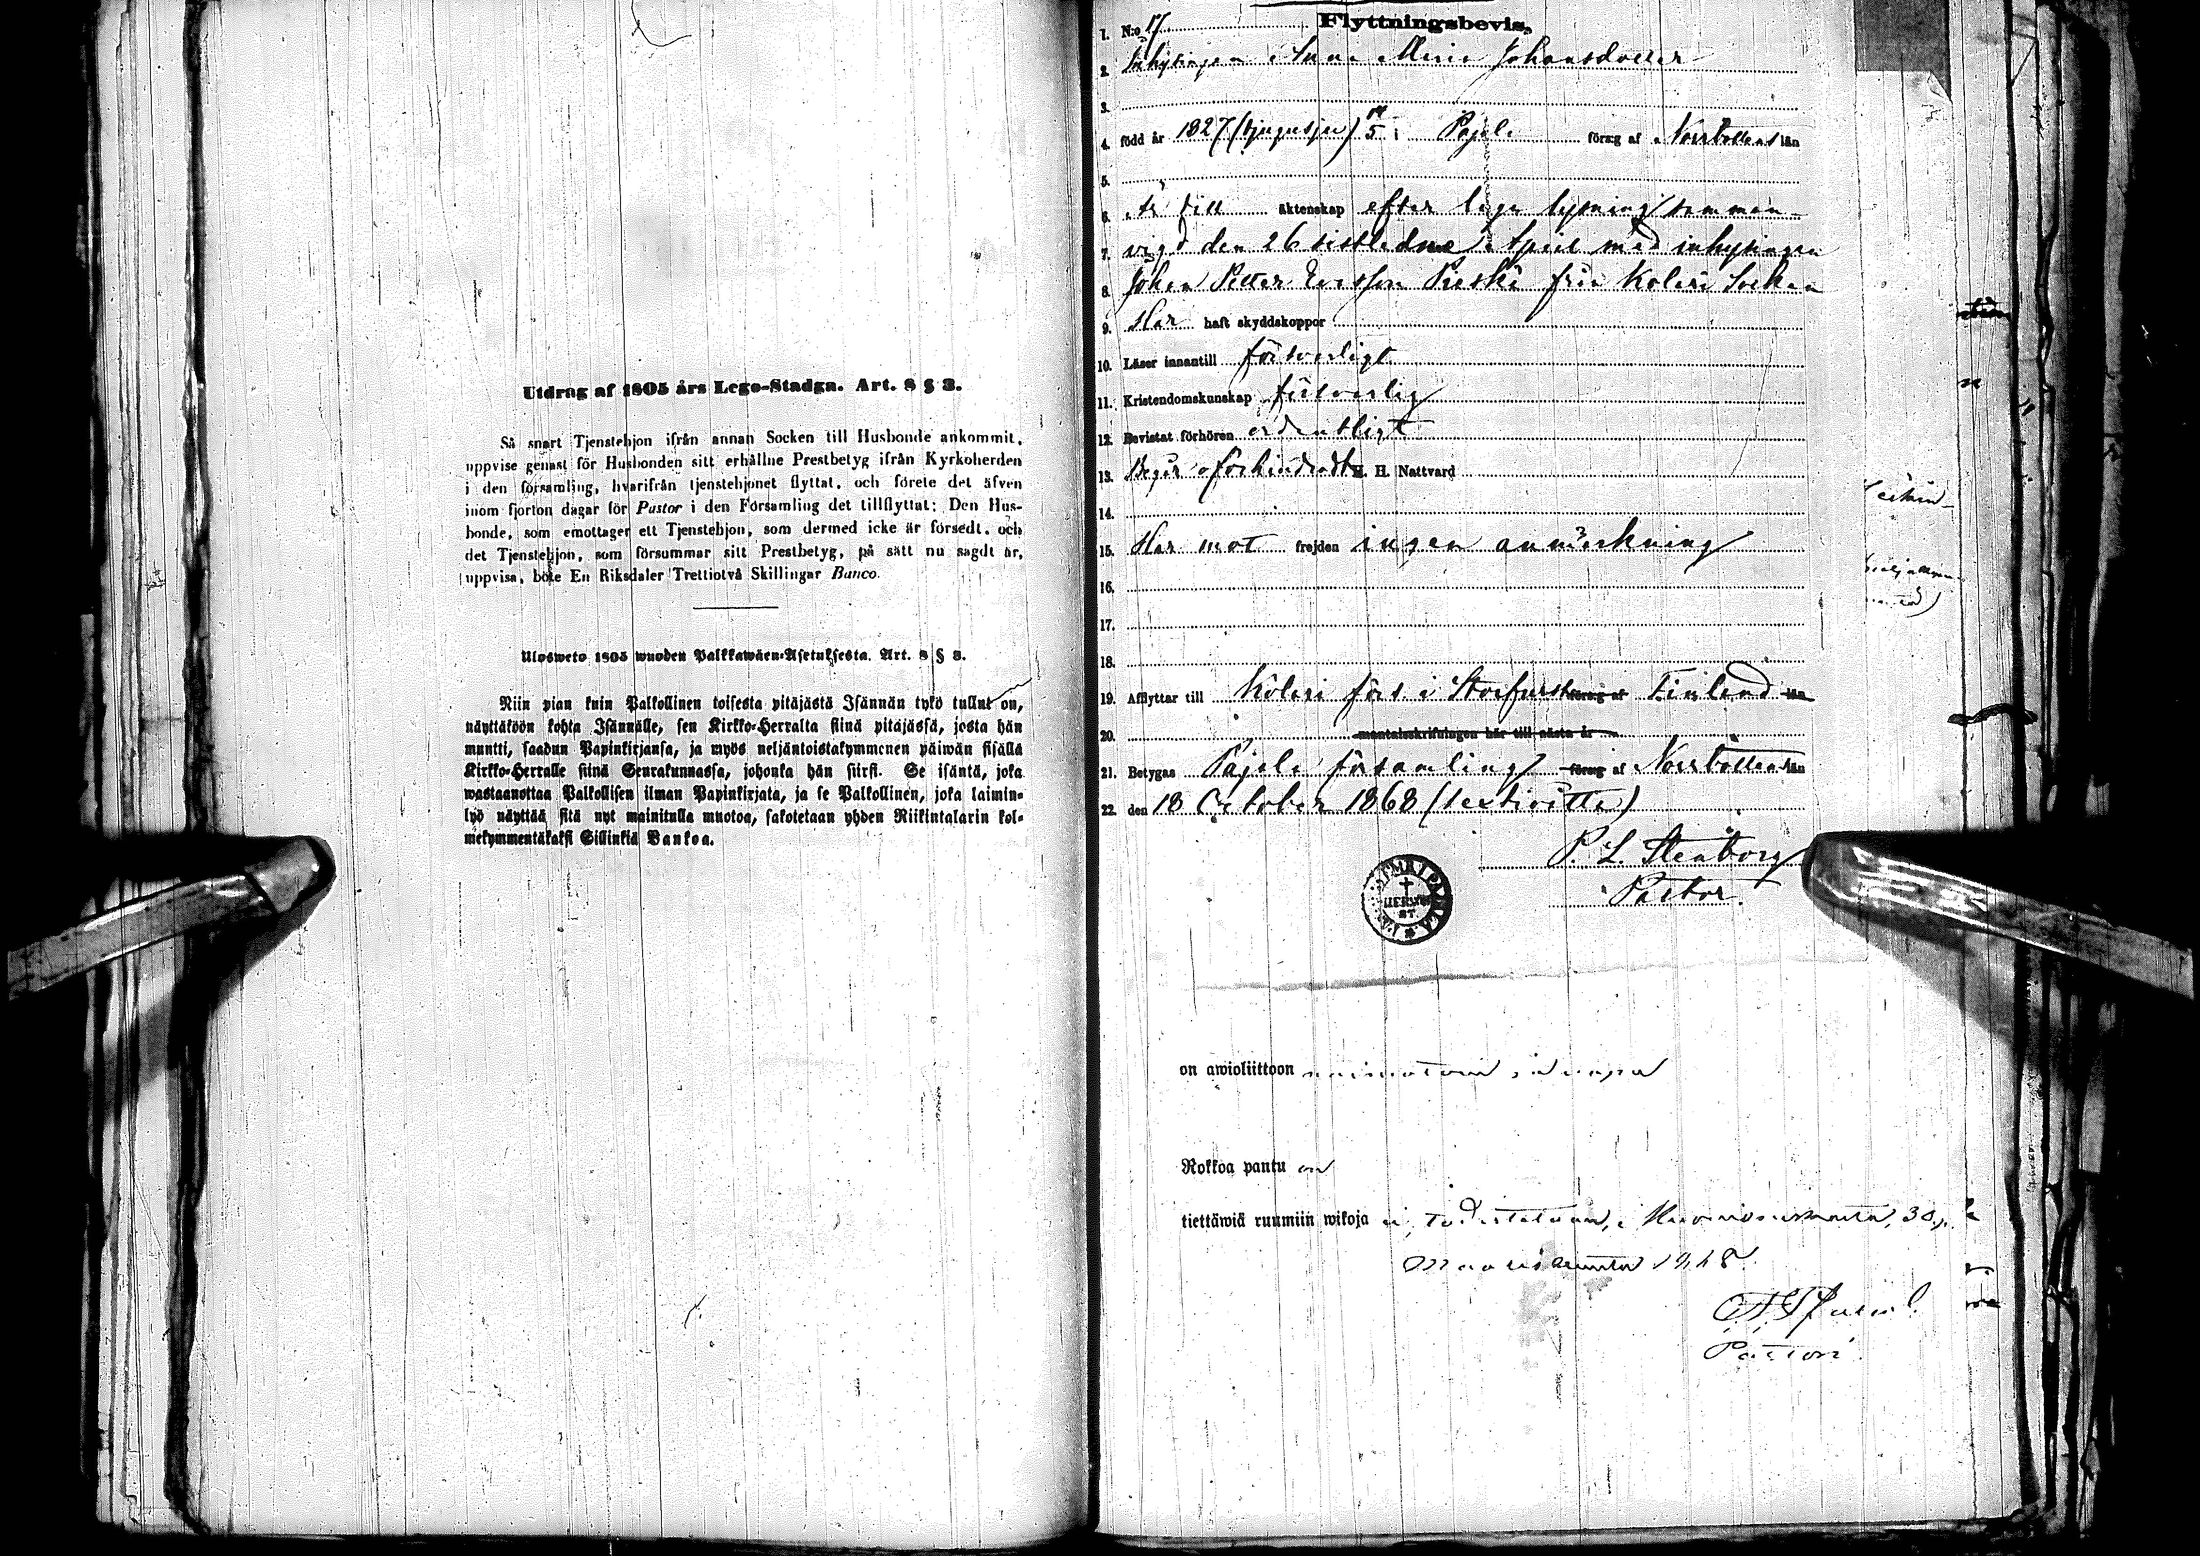 Utdrag af 1805 års Lego-Stadga. Art. 8 § 3.
Så snart Tjenstehjon ifrån annan Socken till Husbonde ankommit,
uppvise genast för Husbonden sitt erhållne Prestbetyg ifrån Kyrkoherden
i den församling, hvarifrån tjenstehjonet flyttat, och förete det äfven
inom fjorton dagar för Pastor i den Församling det tillflyttat; Den Hus-
bonde, som emottager ett Tjenstehjon, som dermed icke är försedt, och
det Tjenstehjon, som försummar sitt Prestbetyg, på sätt nu sagdt är,
uppvisa, böte En Riksdaler Trettiotvå Skillingar Banco.
Ulosweto 1805 wuoden Palkkawäen-Asetuksesta. Art. 8 § 3.
Niin pian kuin Palkollinen toisesta pitäjästä Isännän tykö tullut on,
näyttäköön kohta Isännälle, sen Kirkko-Herralta siinä pitäjässä, josta hän
muutti, saadun Papinkirjansa, ja myös neljäntoistakymmenen päiwän sisällä
Kirkko-Herralle siinä Seurakunnassa, johonka hän siirsi. Se isäntä, joka
wastaanottaa Palkollisen ilman Papinkirjata, ja se Palkollinen, joka laimin-
lyö näyttää sitä nyt mainitulla muotoa, sakotetaan yhden Riikintalarin kol-
mekymmentäkaksi Sillinkiä Bankoa.
Flyttningsbevis,
1. N:o 17.
2. Inhysingen Anna Maria Johansdotter
3.
4. född år 1827 (tjugusju) 5 i Pajala föræg af Norrbottens län
5.
6. är till äktenskap efter laga lysning samman-
7. vigd den 26 sistledne April med inhysingen
8. Johan Petter Ersson Pieski från Kolari Socken
9. Har haft skyddskoppor
10. Läser innantill försvarligt
11. Kristendomskunskap försvarlig
12. Bevistat förhören ordentligt
13. Begår oförhindradt H. H. Nattvard
14.
15. Har mot frejden ingen anmärkning
16.
17.
18.
19. Afflyttar till Kolari förs i Storfurst föræg af Finland län
20. mantalsskrifningen här till nästa år
21. Betygas Pajala församling föræg af Norrbottens län
22. den 18 October 1868 (sextioåtta)
P. L. Stenborg
Pastor.
on awioliittoon
Rokkoa pantu on
tiettäwiä ruumiin wikoja ei, todistetaan, Muonionniskasta, 30 p.
Maaliskuuta 1868.
Pastori.